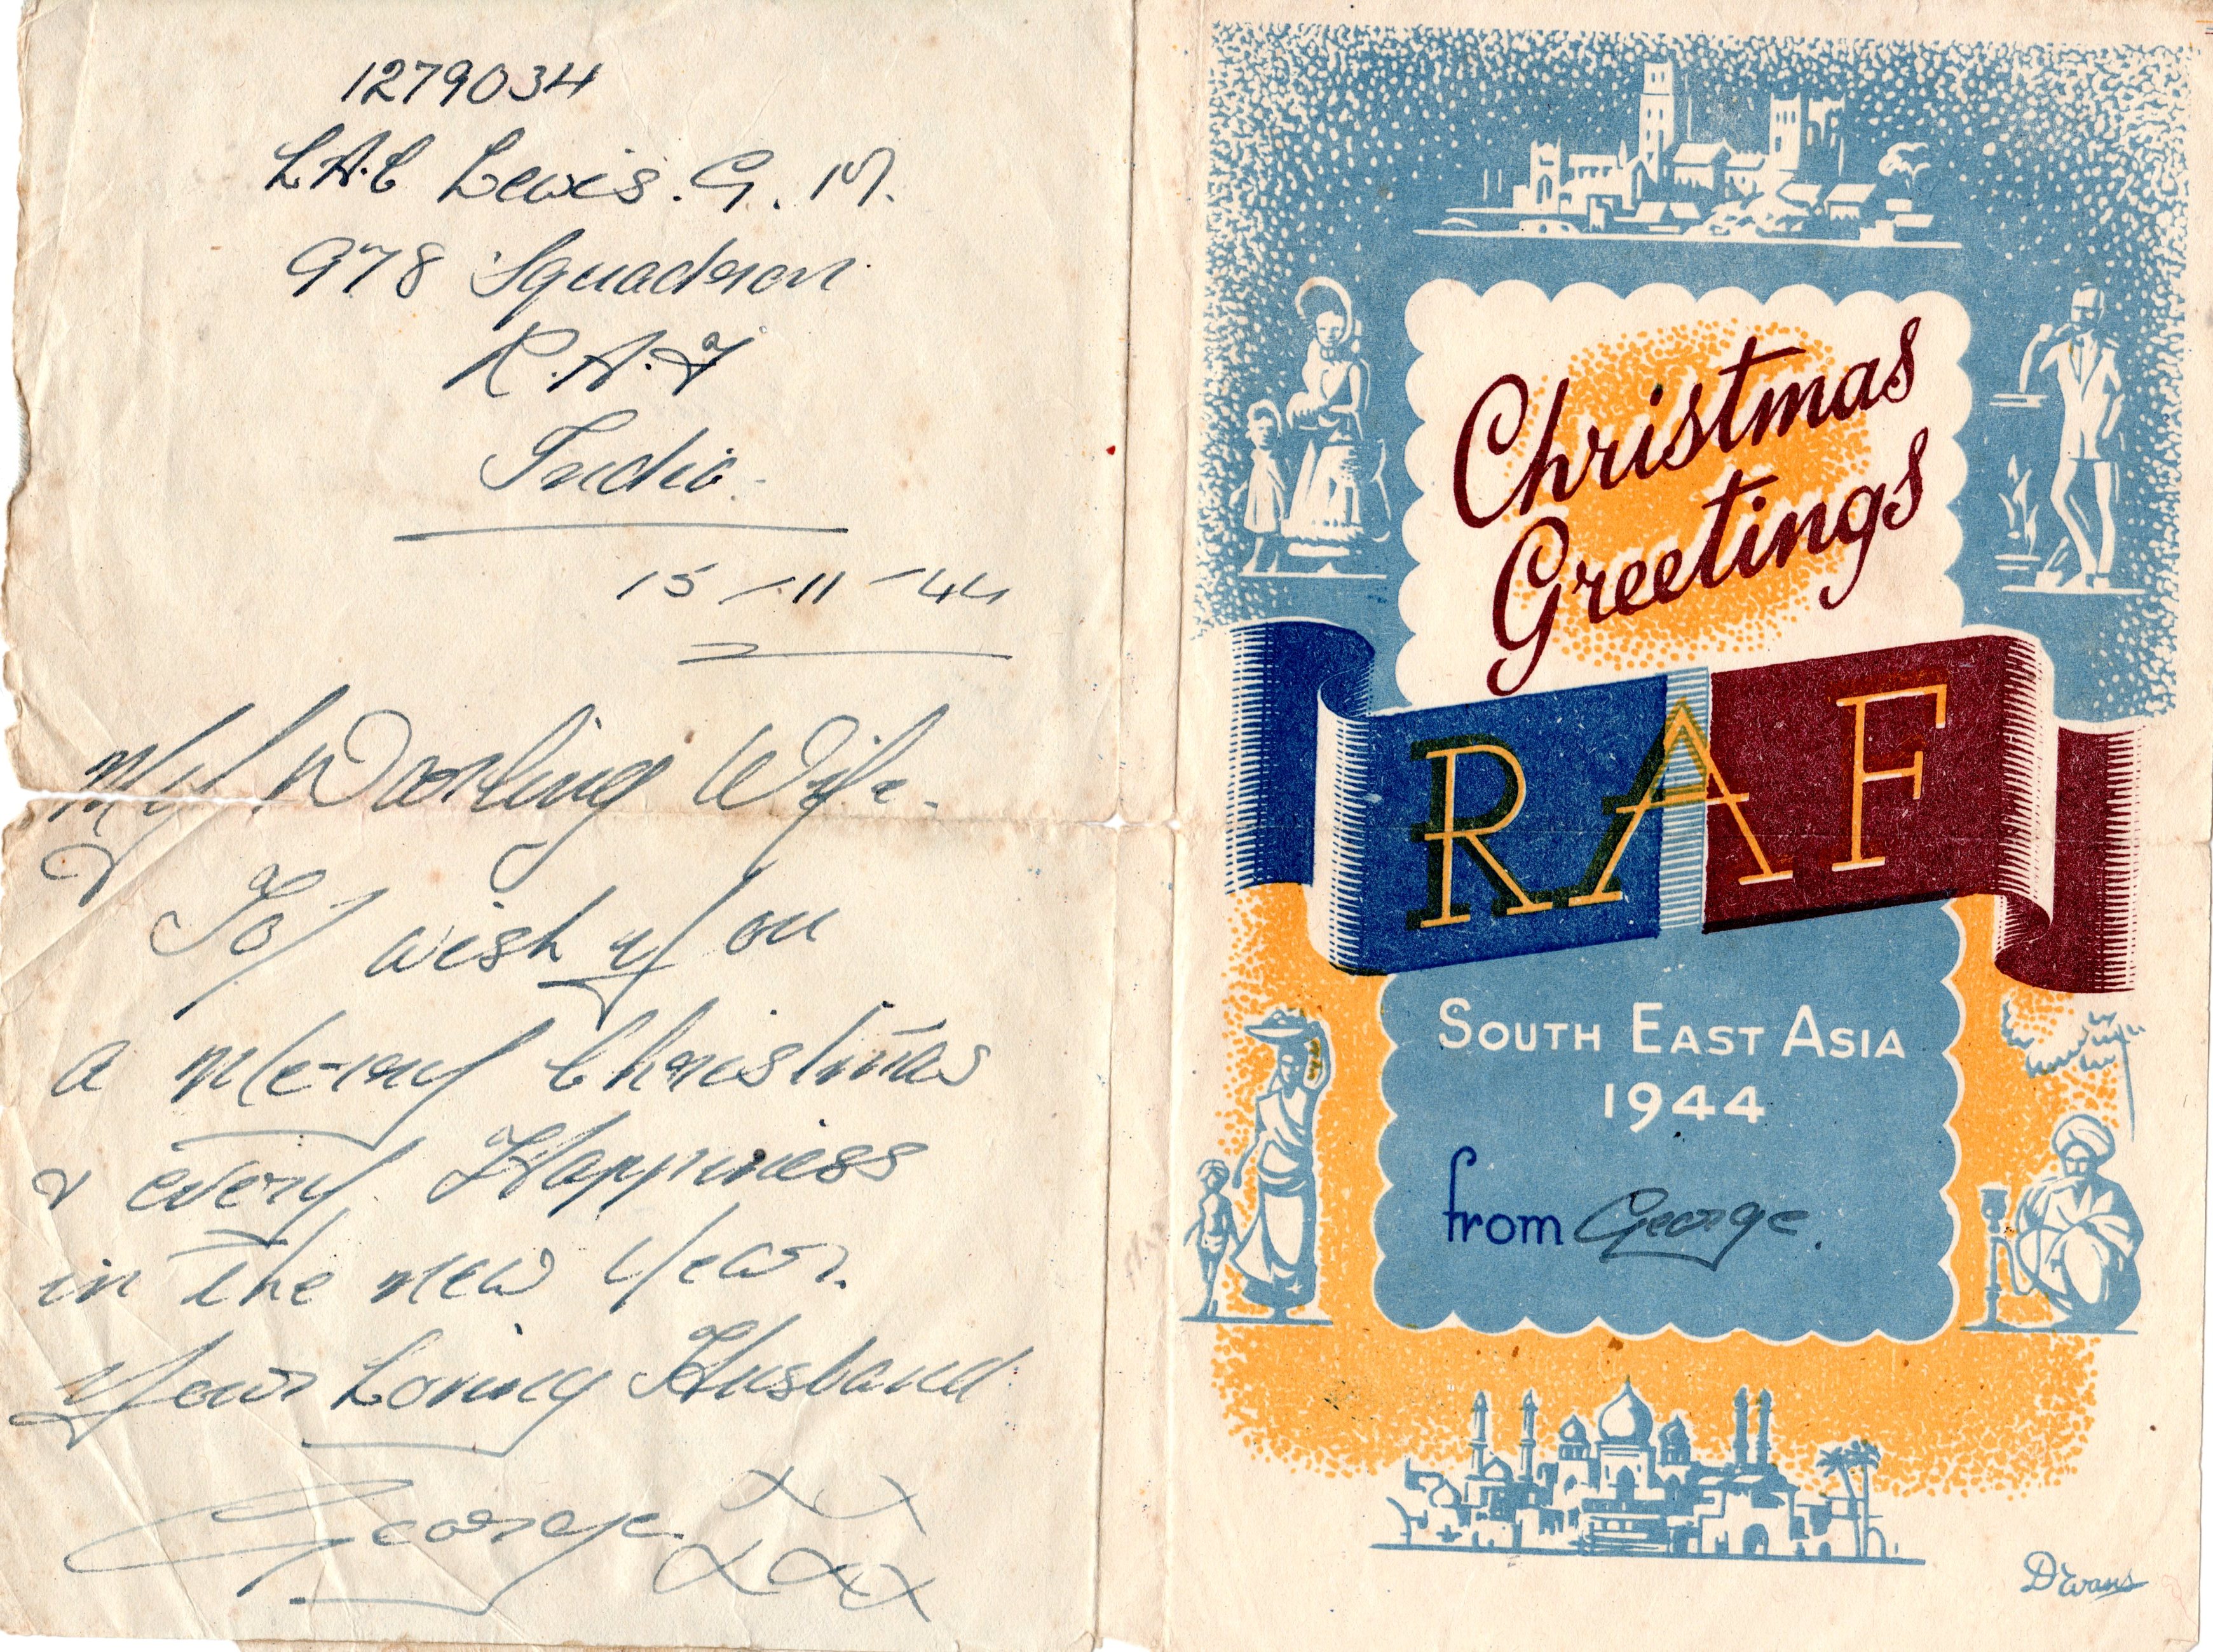 1279034
L.A.C Lewis. G. M.
978 Squadron
R.A.F
India.
15-11-44
My Darling Wife.
To wish you
a merry Christmas
& every Happiness
in the new year.
Your Loving Husband
George. XX
XXX
Christmas
Greetings
RAF
SOUTH EAST ASIA
1944
from George.
D Evans